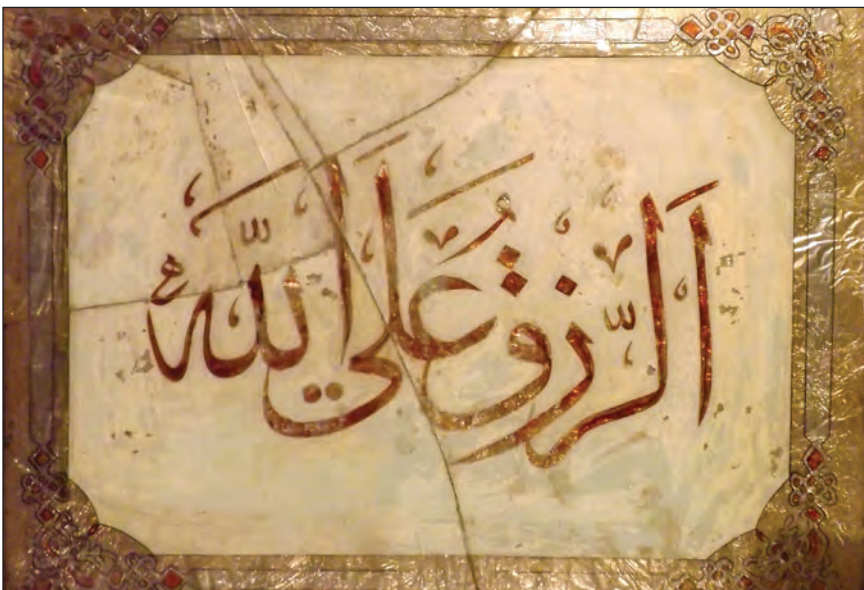 اَلرِّزْقُ عَلَى اللّٰهِ